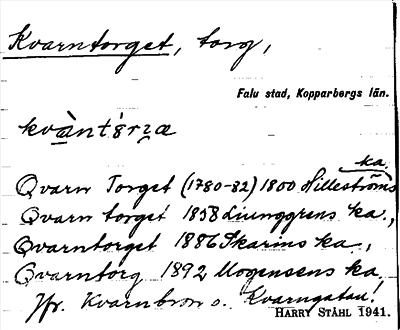 Kvarntorget, torg,
Falu stad, Kopparbergs län.
kvànt́ərʒæ
ka.
Qvarn Torget (1780-82) 1800 Hilleströms
Qvarn torget 1858 Ljunggrens ka.,
Qvarntorget 1886 Skarins ka,
Qvarntorg 1892 Mogensens ka.
Jfr. Kvarnbron o. Kvarngatan!
HARRY STÅHL 1941.